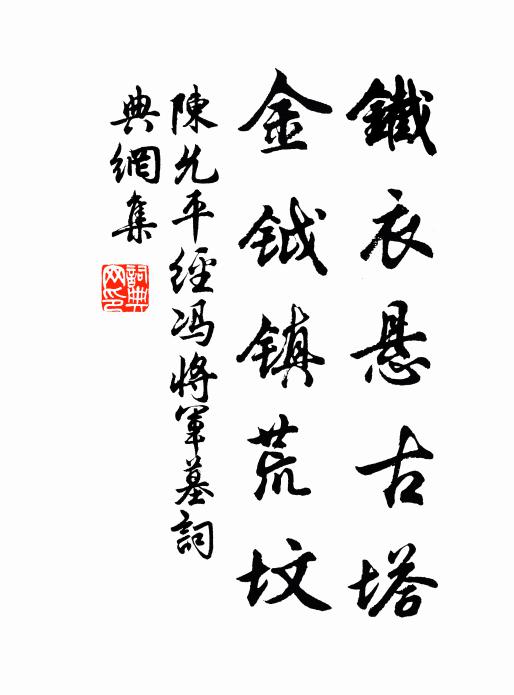 鐵衣悬古塔
金钺镇荒坟
陳允平經冯將軍墓詞
典網集
詞典网印